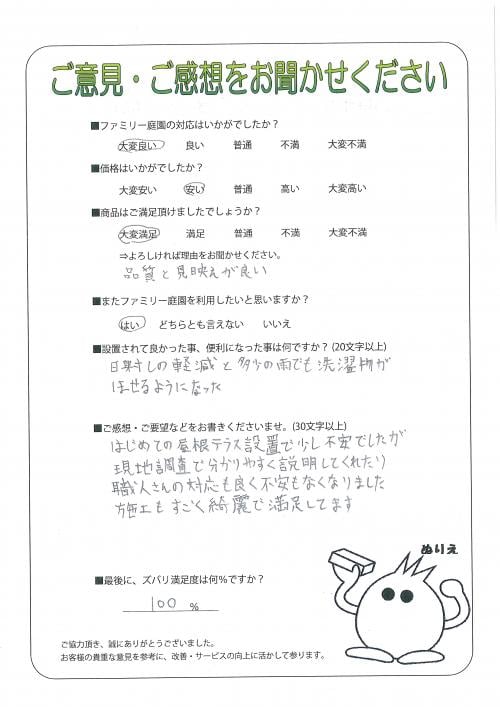 ご意見・ご感想をお聞かせください
■ファミリー庭園の対応はいかがでしたか？
大変良い 良い 普通 不満 大変不満
■価格はいかがでしたか？
大変安い 安い 普通 高い 大変高い
■商品はご満足頂けましたでしょうか？
大変満足 満足 普通 不満 大変不満
⇒よろしければ理由をお聞かせください。
品質と見映えが良い
■またファミリー庭園を利用したいと思いますか？
はい どちらとも言えない いいえ
■設置されて良かった事、便利になった事は何ですか？(20文字以上)
日射しの軽減と多少の雨でも洗濯物が
ほせるようになった
■ご感想・ご要望などをお書きくださいませ。(30文字以上)
はじめての屋根テラス設置で少し不安でしたが
現地調査で分かりやすく説明してくれたり
職人さんの対応も良く不安もなくなりました
施工もすごく綺麗で満足してます
ぬりえ
■最後に、ズバリ満足度は何%ですか？
100 %
ご協力頂き、誠にありがとうございました。
お客様の貴重な意見を参考に、改善・サービスの向上に活かして参ります。